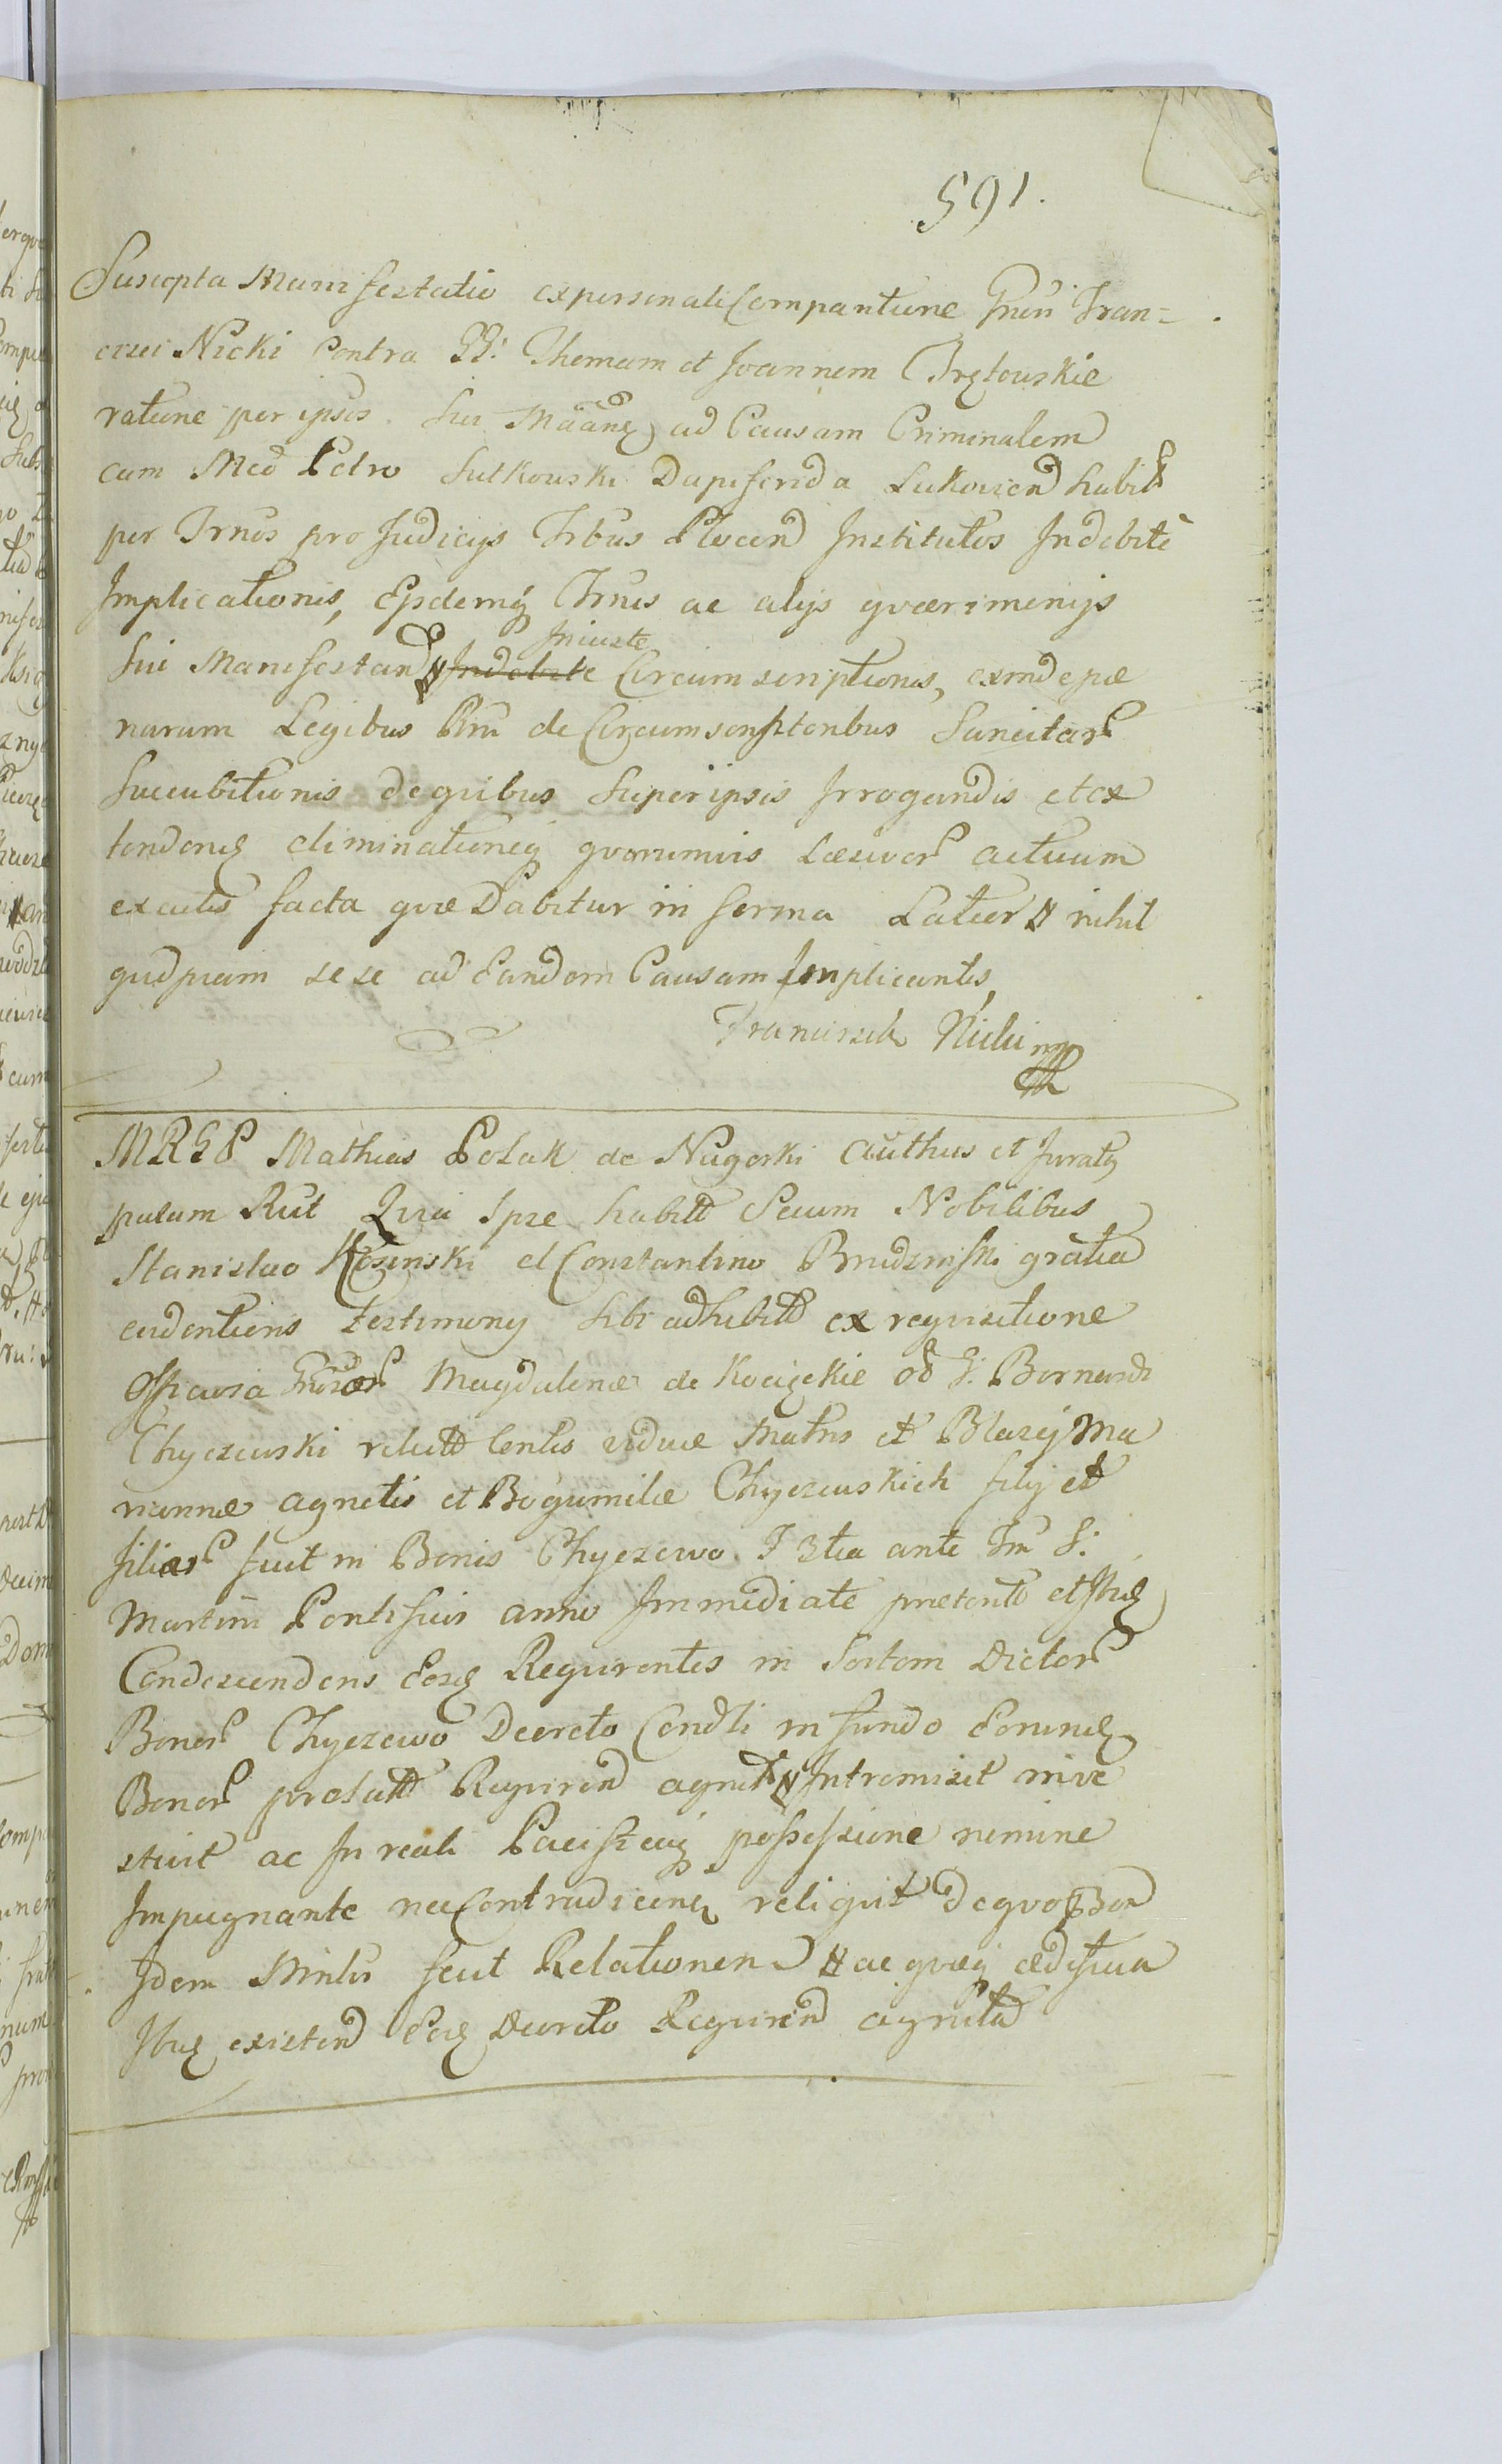 591.
Suscepta Manifestatio ex personali Comparitione Gnēri Fran=
ciszci Nicki Contra GG: Thomam et Joannem Chrętowskie
ratione per ipsos. Sui Māānq ad Causam Criminalem
cum Mco Petro Sutkowski Dapiferida Lukovien habit
per Trnos pro Judicijs Trbus Plocen Institutos Indebite
Implicationis, Ejsdemq Trnis ac alijs quaerimenijs
Iniuste
Sui Manifestan Indebite Circumscriptionis, exindepæ
narum Legibus Rni de Circumscriptionibus Sancitar
Succubitionis de quibus Super ipsis Irrogandis et ex
tendendq eliminationeq quorumvis Læsivor actuum
ex actis facta quæ Dabitur in forma Latior nihil
quidpiam sese ad Eandem Causam Implicantis,
Franciszek Nicki mp
MRGP Mathias Polak de Nagorki Authus et Juratq
palam Rut Quia Ipse habitt Secum Nobilibus
Stanislao Kosinski et Constantino Brudzinski gratia
evidentioris testimonij Sibi adhibitt ex requisitione
Officiosa Gnisor Magdalenæ de Kocięckie olf G. Bernardi
Chyczewski relictt Consortis viduæ Matris et Blasij Ma
riannæ Agnetis et Bogumilæ Chyczewskich filij et
filiar fuit in Bonis Chyczewo F 3tia ante Fm S:
Martini Pontificis anno Immediate præterito et Ibiq
Condescendens Eosq Requirentes in Sortem Dictor
Bonor Chyczewo Decreto Condli in fundo Eorundq
Bonor prolatt Requiren agnitt Intromisit inve
stivit ac In reali Pacificaq possessione nemine
Impugnante nec Contradicenq reliquit de quo Bon
Idem Minlis fecit Relationem ac quoq ædificia
Ibiq existen Eoq Decreto Requiren agnita